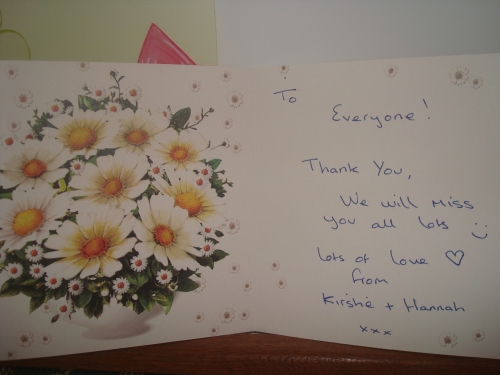 To
Everyone!
Thank You,
We will miss
you all lots :)
lots of love ♡
from
Kirshé + Hannah
xxx